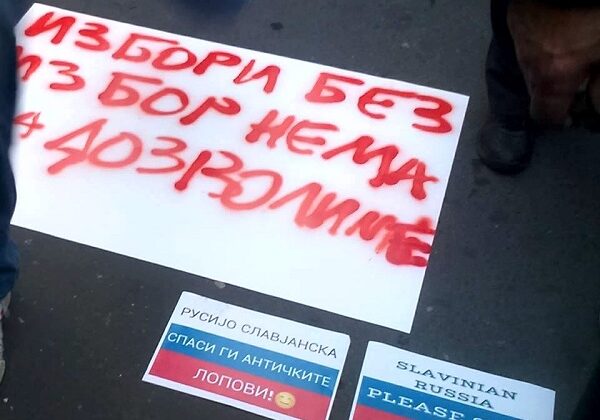 ИЗБОРИ БЕЗ
ИЗБОР НЕМА
ДОЗВОЛИМЕ
РУСИЈО СЛАВЈАНСКА
СПАСИ ГИ АНТИЧКИТЕ
ЛОПОВИ!😊
SLAVINIAN
RUSSIA
PLEASE